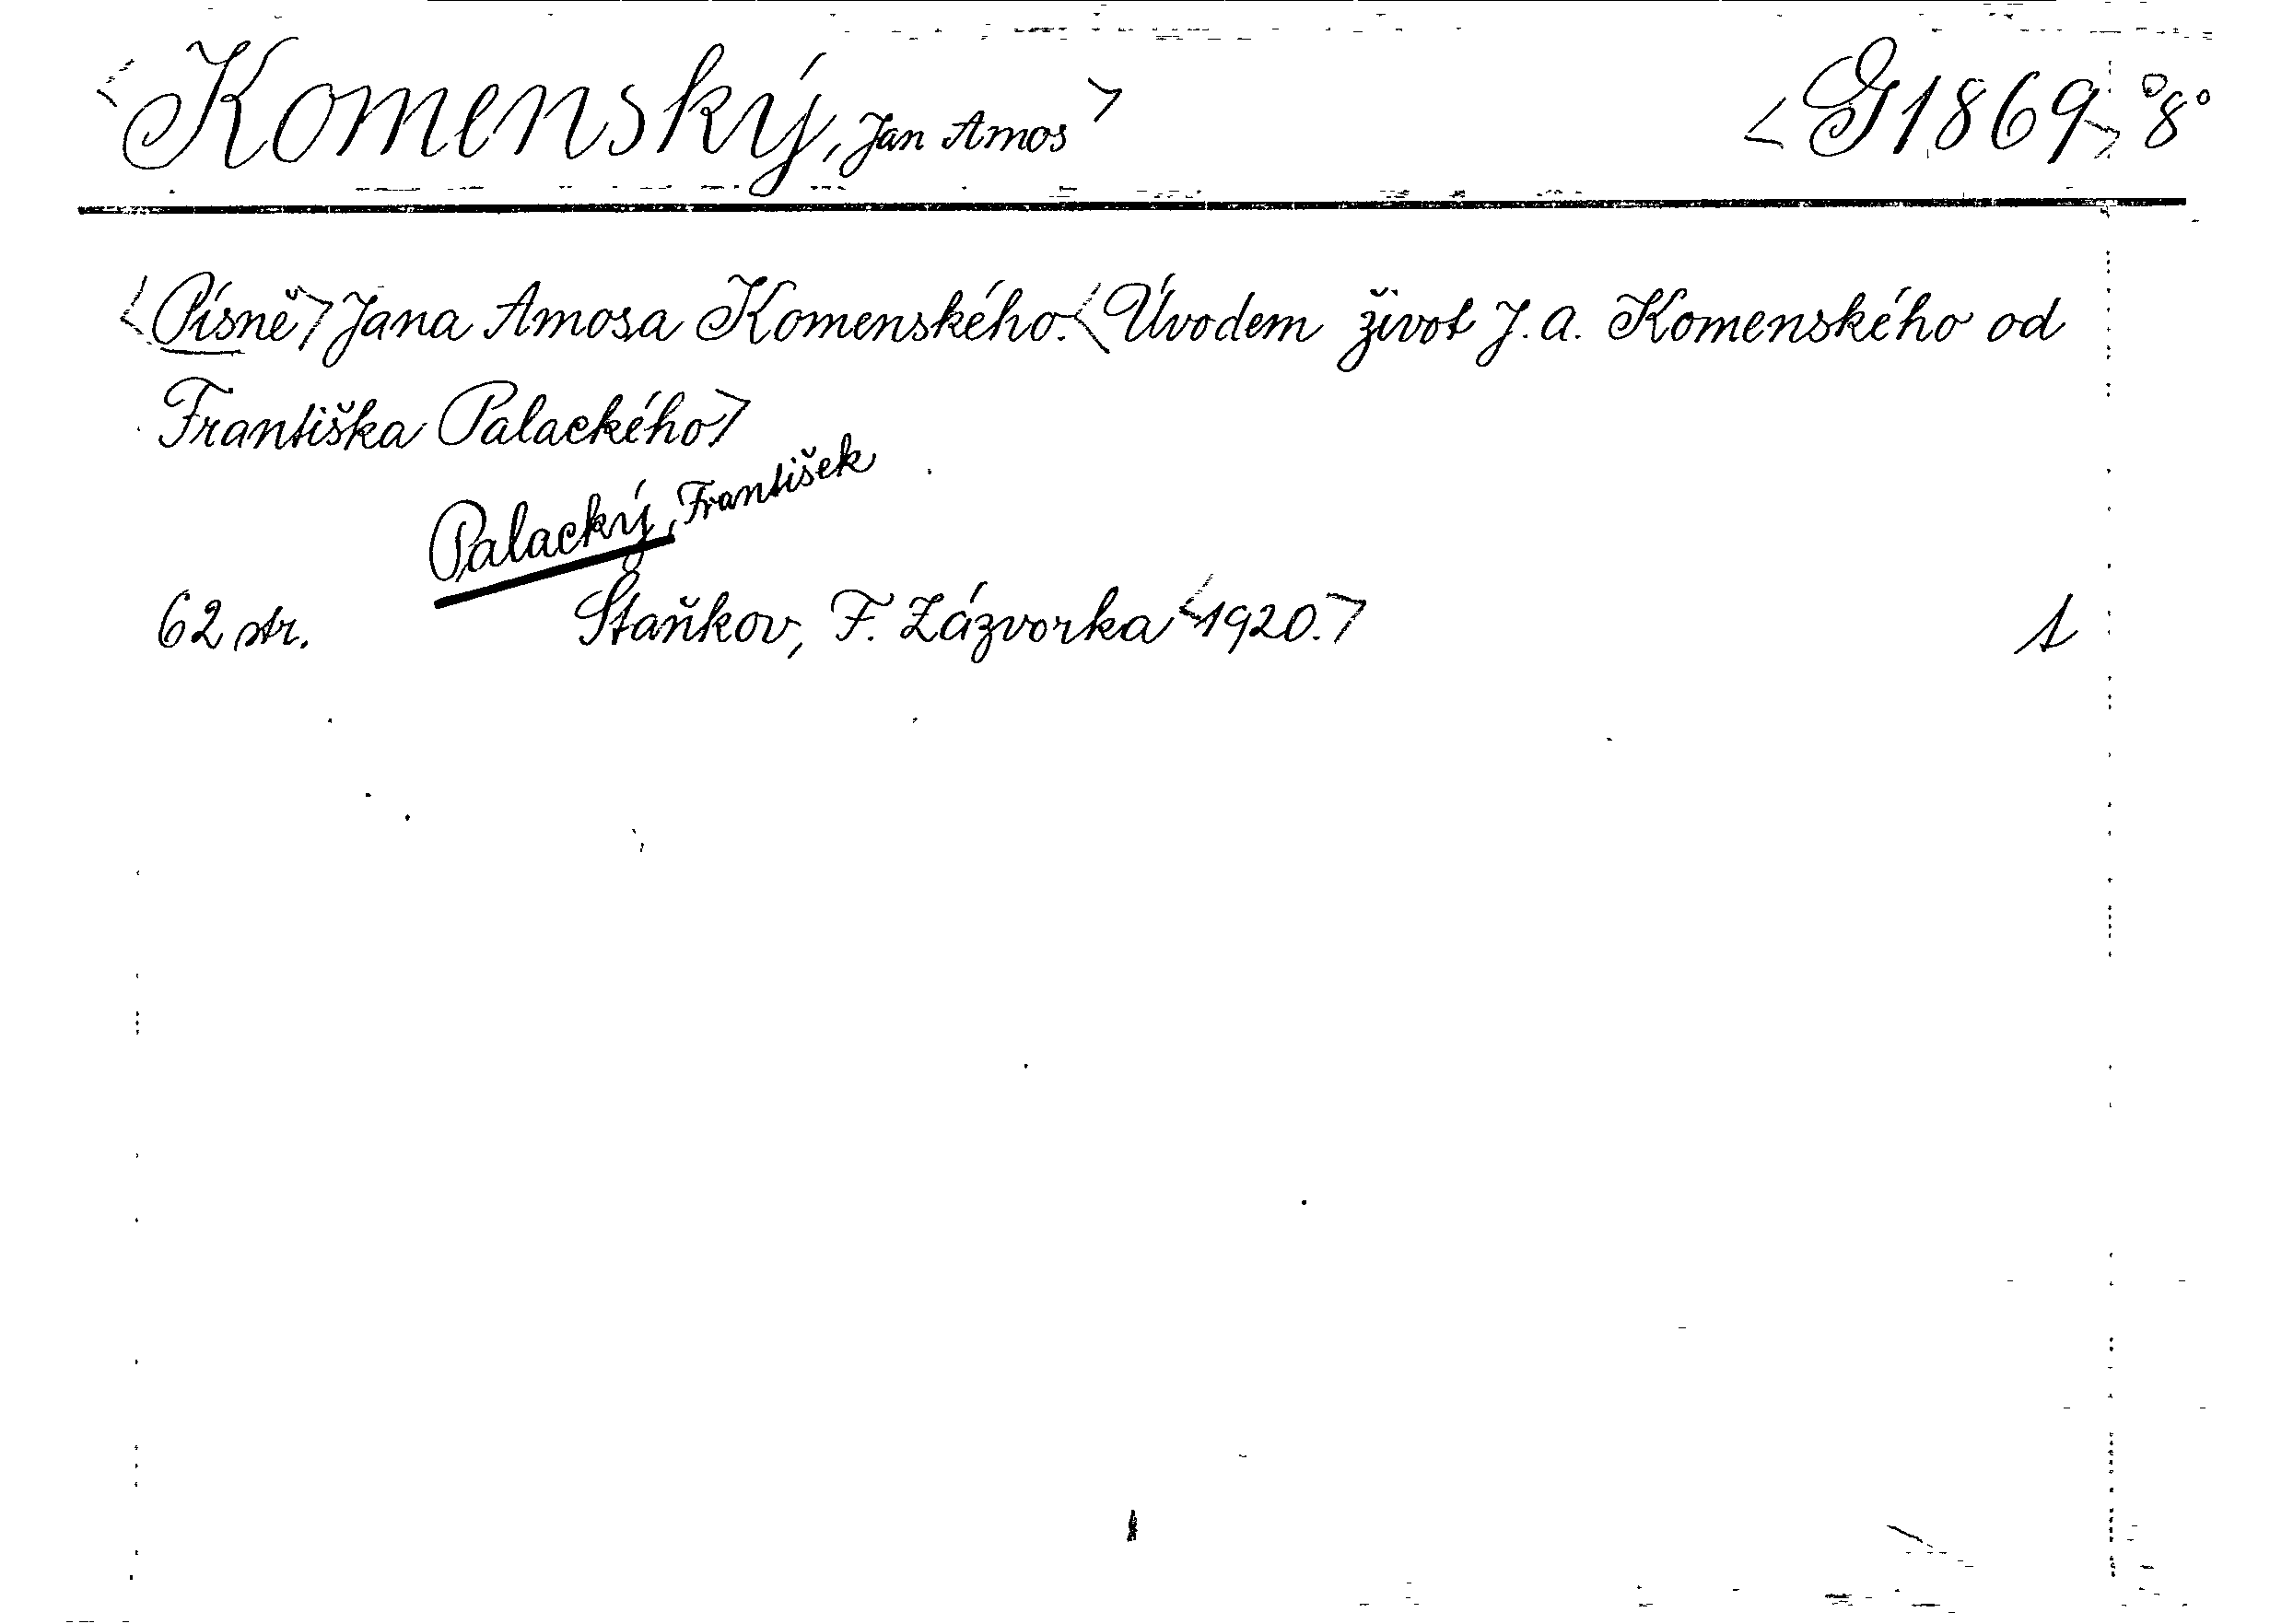 <Komenský, Jan Amos> <G1869> 8°
<Písně> Jana Amosa Komenského. <Úvodem život J. A. Komenského od
Františka Palackého>
Palacký, František
62 str. Staňkov, F. Zázvorka <1920.> 1